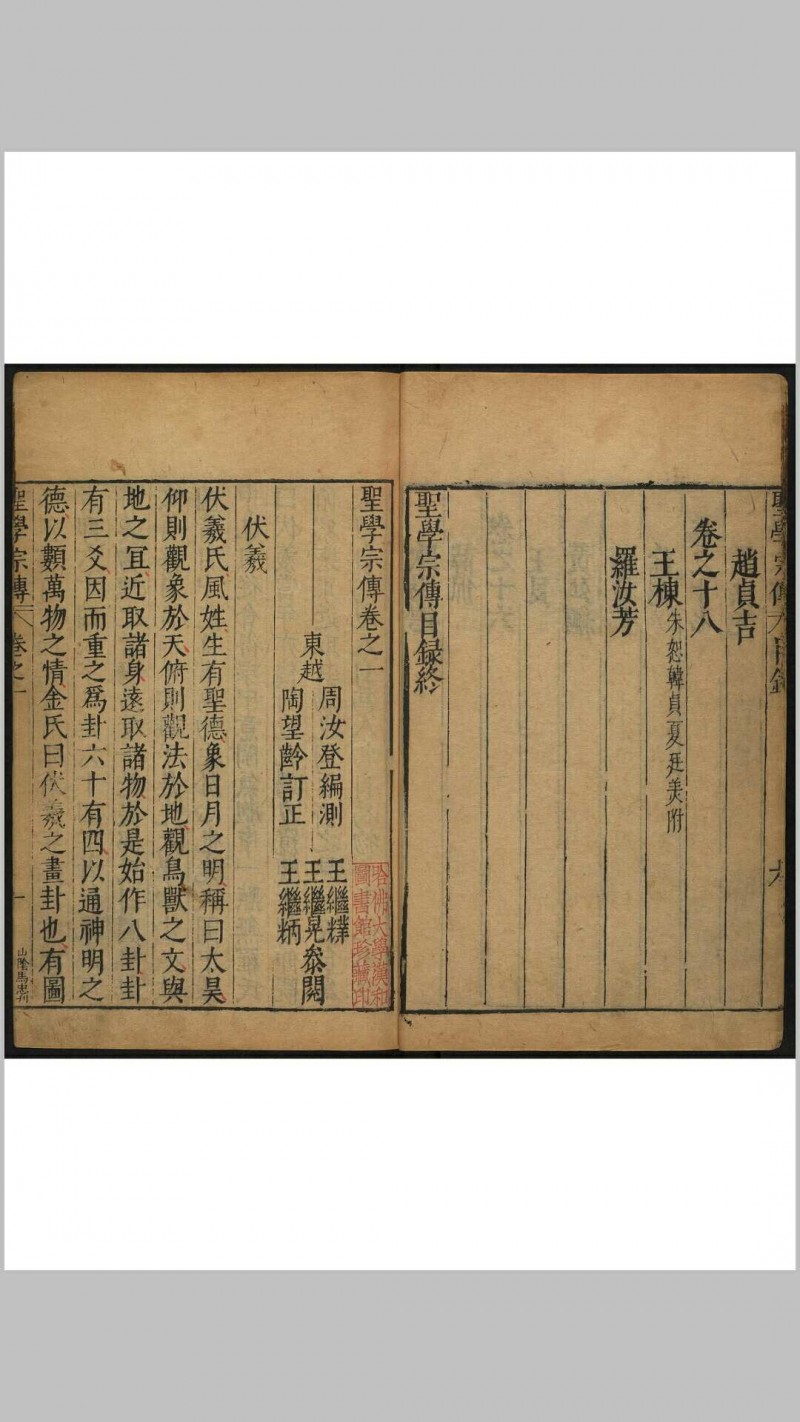 聖學宗傳 目錄
趙貞吉
卷之十八
王棟 朱恕韓貞夏廷美附
羅汝芳
聖學宗傳目録終
聖學宗傳卷之一
東越
周汝登編測
陶望齡訂正
王繼
王繼晃叅閱
王繼炳
哈佛大學漢和
圖書館珍藏印
伏羲
伏羲氏風姓生有聖德象日月之明稱曰太昊
仰則觀象於天俯則觀法於地觀鳥獸之文與
地之冝近取諸身遠取諸物於是始作八卦卦
有三爻因而重之爲卦六十有四以通神明之
德以類萬物之情金氏曰伏羲之畫卦也有圖
聖學宗傳 卷之一 一